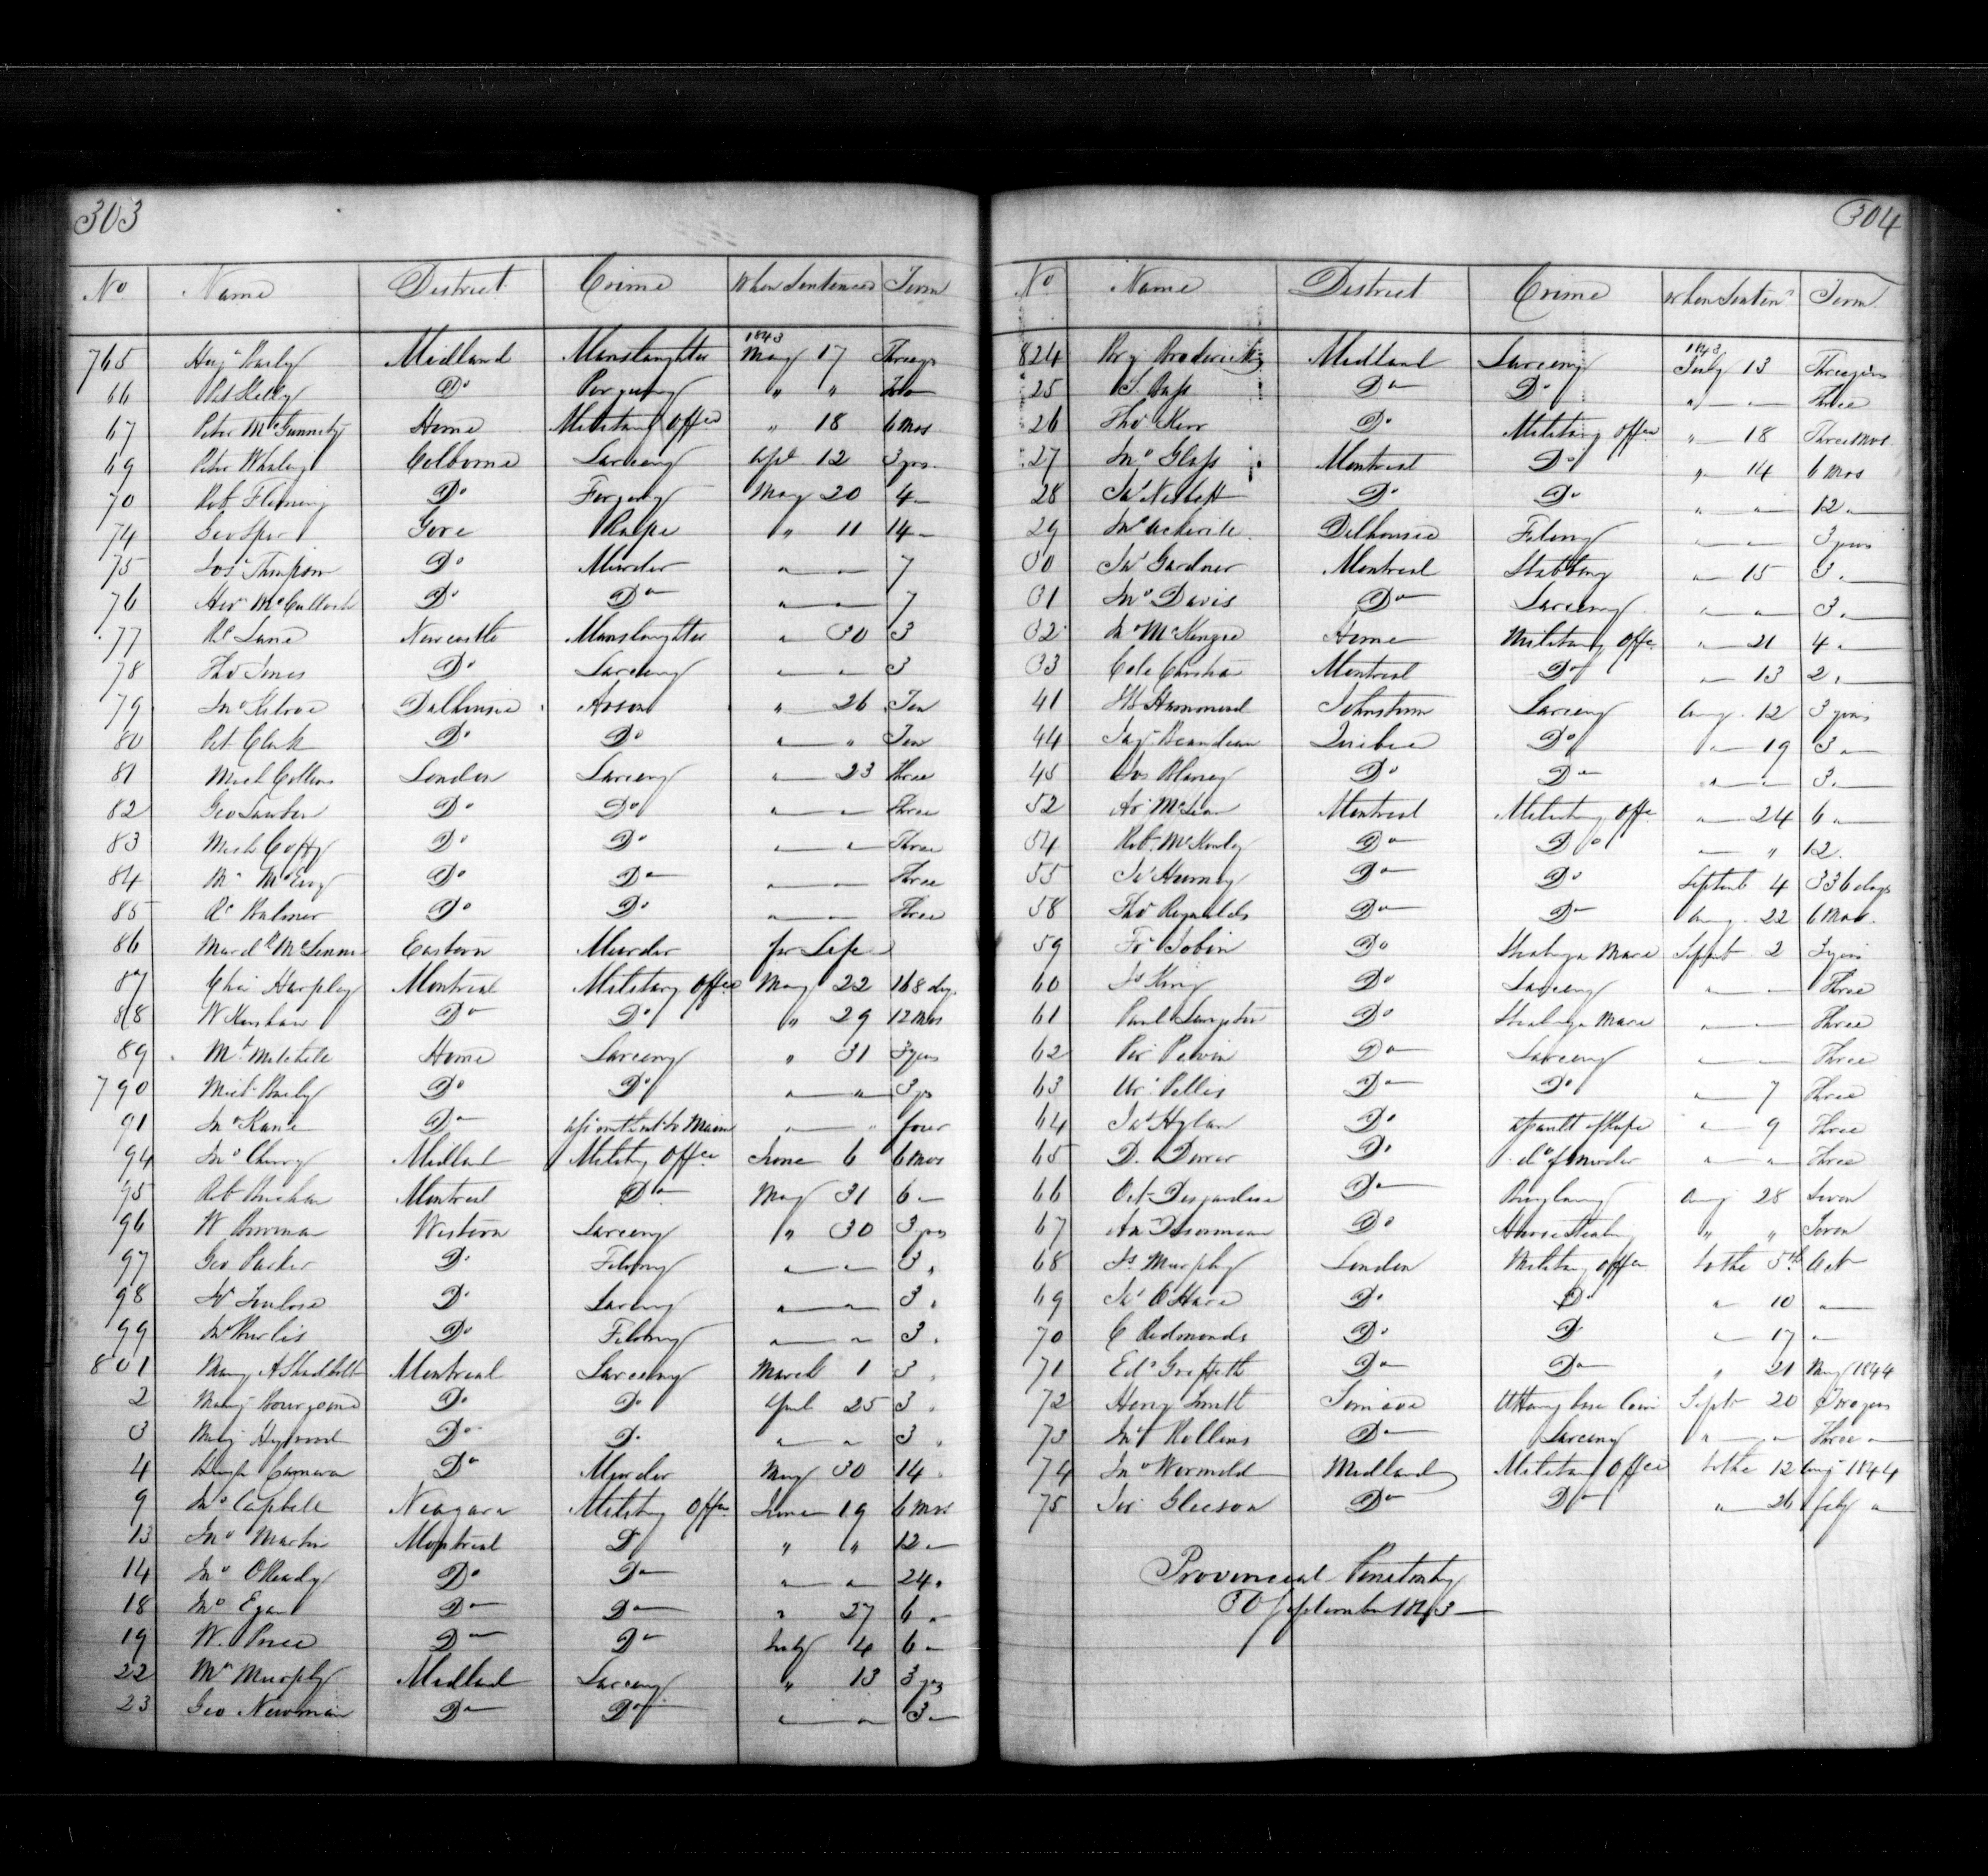 303
No Name District Crime When Sentenced Term
1843
765 Midland Manslaughter May 17 Three yrs
66 Pat Kelly Do Perjury " "
67 Peter McGunnety Home Military Offce " 18 6 Mos
69 Peter Whaling Colborne Larceny Apl 12 3 yrs
70 Rob Fleming Do Forgery May 20 4 "
74 Geo Sper Gore Rape " 11 14 "
75 Jos Thompson Do Murder " " 7
76 McCulloch Do Do " " 7
77 Rd Lane Newcastle Manslaughter " 30 3
78 Tho Jones Do Larceny " " 3
79 Jno Kilroe Dalhousie Arson " 26 Ten
80 Pat Clark Do Do " " Ten
81 Mich Collins London Larceny " 23 three
82 Geo Lawber Do Do " " Three
83 Mich Coffy Do Do " " Three
84 Mc McEvoy Do Do " " Three
85 Rd Palmer Do Do " " Three
86 McLennan Eastern Murder for Life
87 Chs Harpley Montreal Military Offce May 22 168 dys
88 W Kershaw Do Do " 29 12 Mos
89 Mt Mitchell Home Larceny " 31 3 yrs
790 Mich Do Do " " 3 yrs
91 Jno Kane Do Maim " " four
94 Jno Cherry Midland Military Offce June 6 6 Mos
95 Rob Montreal Do May 31 6 "
96 W Bowman Western Larceny " 30 3 yrs
97 Geo Parker Do Felony " " 3 "
98 Do Larceny " " 3 "
99 Do Felony " " 3 "
801 Mary A Shadbolt Montreal Larceny March 1 3 "
2 Mary Bourgoine Do Do April 25 3 "
3 Mary Do Do " " 3 "
4 Hugh Cameron Do Murder May 30 14 "
9 Jno Capbell Niagara Military Offce June 19 6 Mos
13 Jno Martin Montreal D " " 12 "
14 Jno OReady Do Do " " 24 "
18 Jno Egan Do Do " 27 6 "
19 W. Price Do Do July 4 6 "
22 Mc Murphy Midland Larceny " 13 3 yrs
23 Geo Newman Do Do " " 3 "
304
No Name District Crime when Senten Term
1843
824 Broderick Midland Larceny July 13 Three yrs
25 Do Do " " Three
26 Tho Kerr Do Military Offce " 18 Three Mos.
27 Jno Glass Montreal Do " 14 6 Mos
28 Jas Nesbitt Do Do " " 12 "
29 Jno Dalhousie Felony " " 3 years
30 Jas Gardner Montreal Stabbing " 15 3 "
31 Jno Davis Do Larceny " " 3 "
32 Jno McKenzie Home Military Offce " 21 4 "
33 Cole Christian Montreal Do " 13 2 "
41 Hammond Johnstown Larceny Aug 12 3 years
44 Beaudeau Quebec Do " 19 3 "
45 Jos Blaney Do Do " " 3 "
52 Ar McLean Montreal Military Offce " 24 6 "
54 Rob McKinley Do Do " " 12
55 Do Do Septemb 4 336 days
58 Tho Reynolds Do Do Aug 22 6 Mos.
59 Fr Tobin Do Stealing a Mare Septemb 2 3 yrs
60 Js King Do Larceny " " Three
61 Paul Do Stealing a Mare " " Three
62 Do Larceny " " Three
63 Do Do " 7 Three
64 Jas Hylan Do assault of Rape " 9 Three
65 D. Do do of murder " " Three
66 Oct Desjardins Do Burglary Aug 28 Seven
67 Do Horse Stealing " " Seven
68 Js Murphy London Military Offce to the 5th Oct
69 Jas O'Hara Do Do " 10 "
70 C Redmonds Do D " 17 "
71 Ed Griffith Do Do " 21 May 1844
72 Henry Smith Simcoe Uttering base Coin Septr 20 Two years
73 Jno Rollins Do Larceny " " Three "
74 Jno Wormold Midland Military Offce to the 12 Aug 1844
75 Gleeson Do Do " 26 Feby "
Provincial Penitentiy
30 September 1843